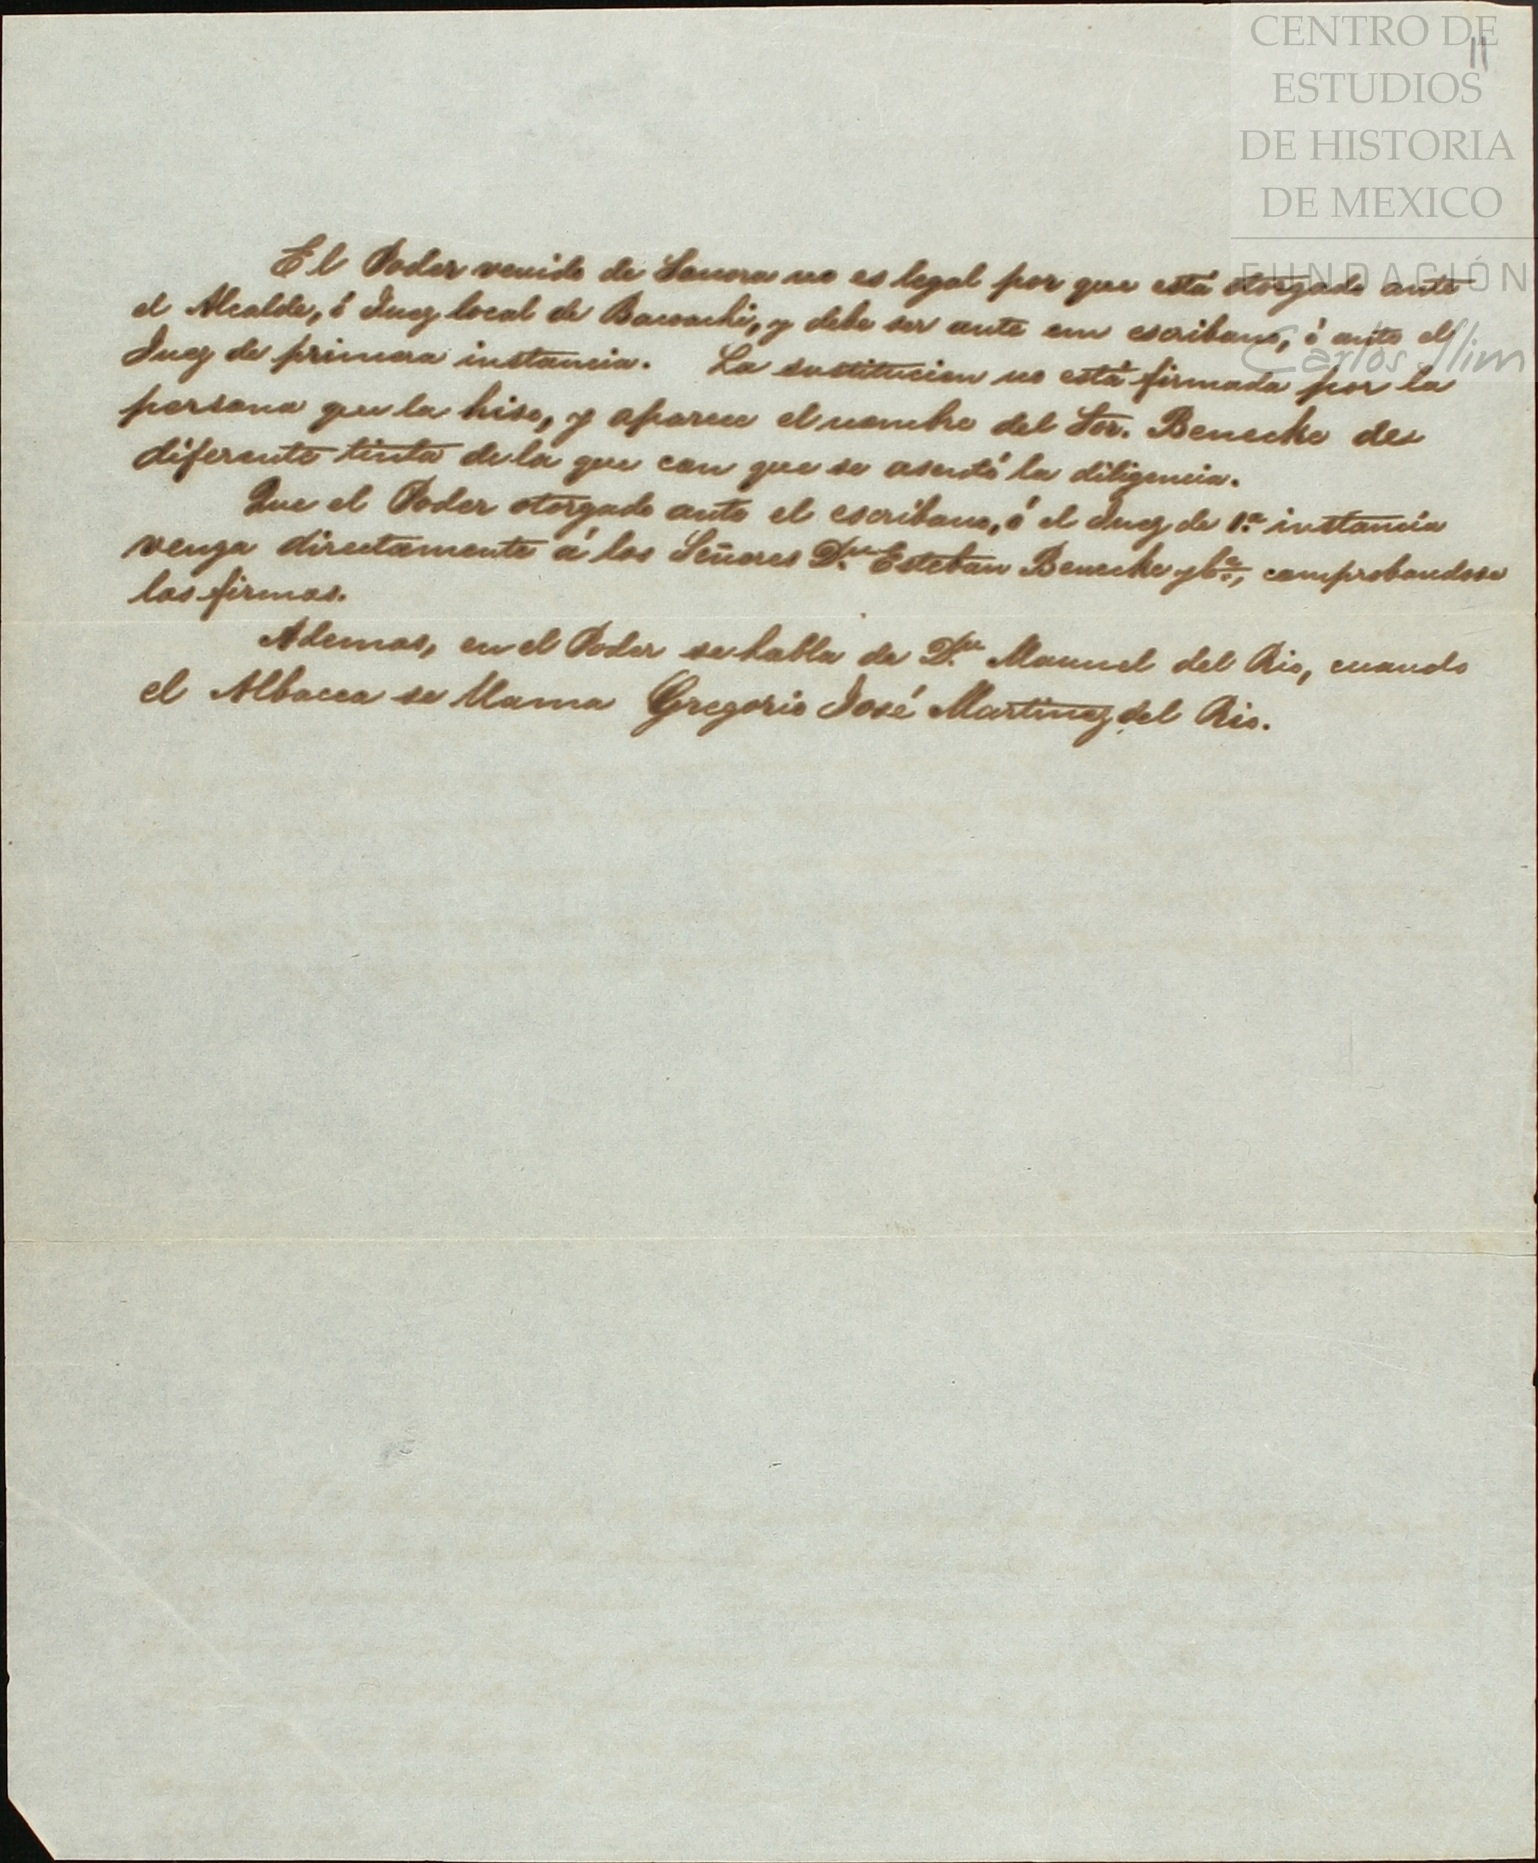 CENTRO DE
ESTUDIOS
DE HISTORIA
DE MEXICO
FUNDACIÓN
Carlos Slim
11
El Poder venido de Sonora no es legal por que está otorgado ante
el Alcalde, ó Juez local de Bacoachi, y debe ser ante un escribano, ó ante el
Juez de primera instancia. La sustitucion no está firmada por la
persona que la hiso, y aparece el nombre del Sor. Benecke de
diferente tinta de la que con que se asentó la diligencia.
Que el Poder otorgado ante el escribano, ó el Juez de 1.a instancia
venga directamente á los Señores Dn. Esteban Benecke y Ca., comprobandose
las firmas.
Ademas, en el Poder se habla de Dn. Manuel del Rio, cuando
el Albacea se llama Gregorio José Martinez del Rio.